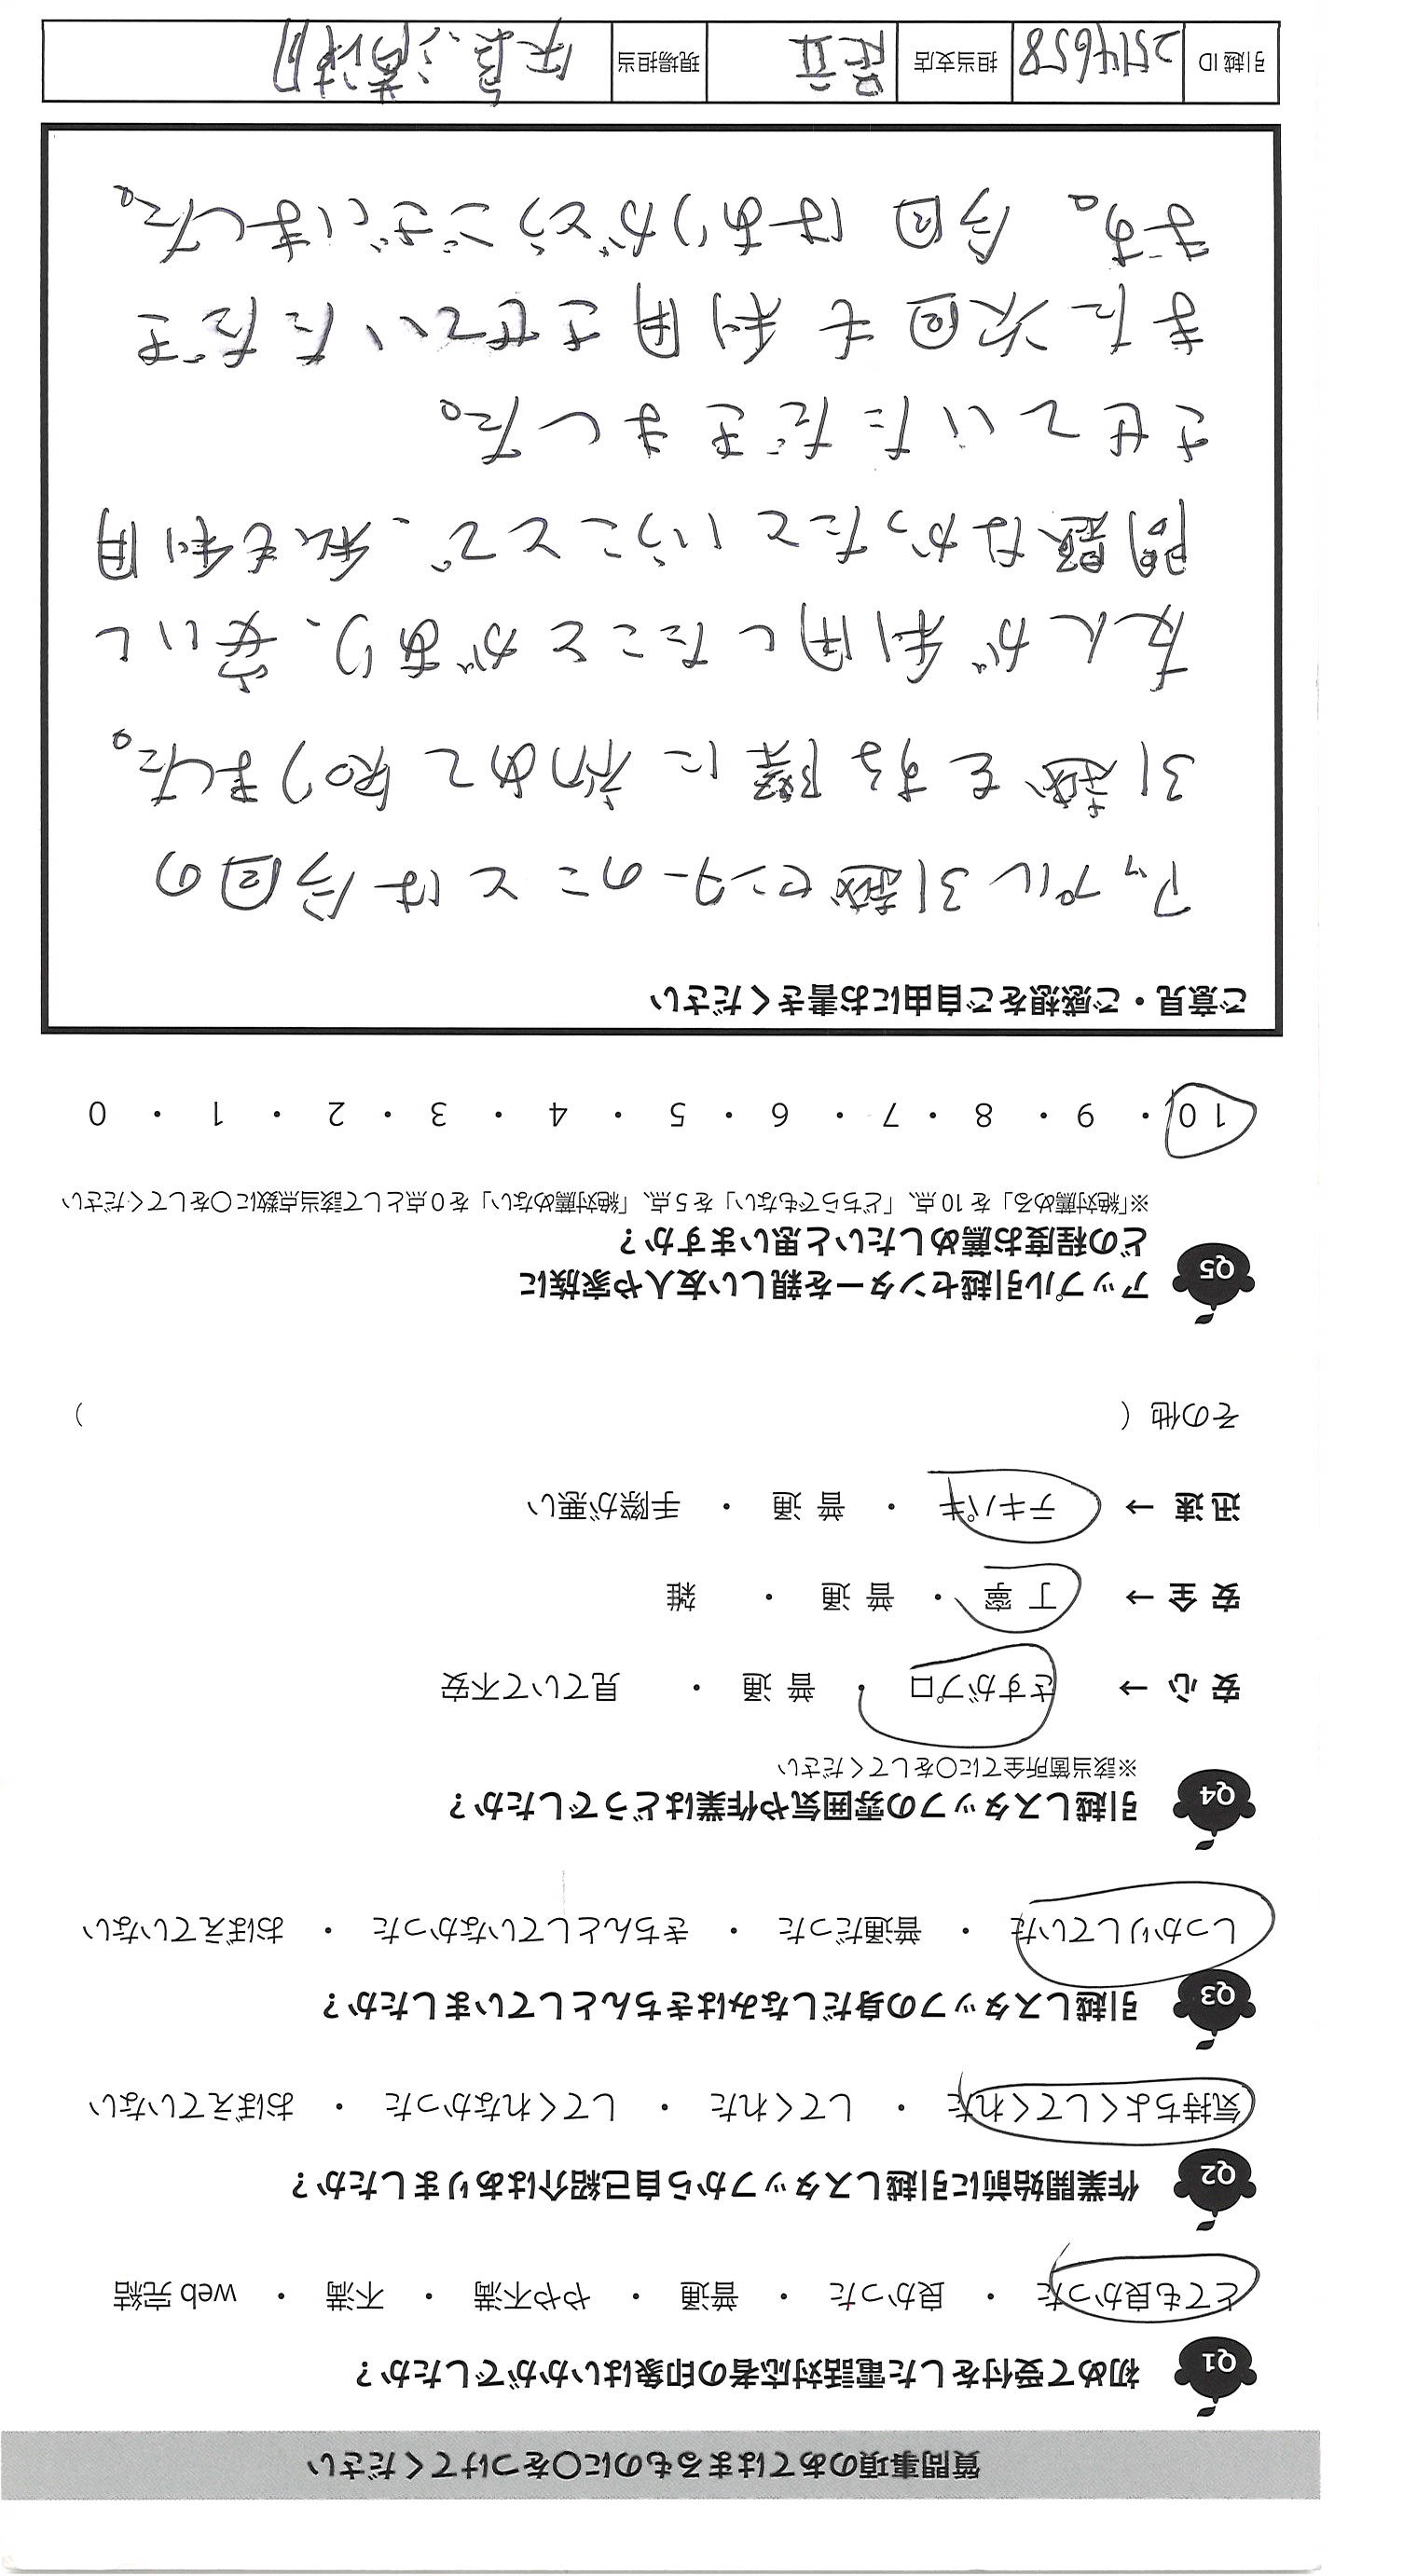 質問事項のあてはまるものに〇をつけてください
Q1 初めて受付をした電話対応者の印象はいかがでしたか？
とても良かった ・ 良かった ・ 普通 ・ やや不満 ・ 不満 ・ web 完結
Q2 作業開始前に引越しスタッフから自己紹介はありましたか？
気持ちよくしてくれた ・ してくれた ・ してくれなかった ・ おぼえていない
Q3 引越しスタッフの身だしなみはきちんとしていましたか？
しっかりしていた ・ 普通だった ・ きちんとしていなかった ・ おぼえていない
Q4 引越しスタッフの雰囲気や作業はどうでしたか？
※該当箇所全てに〇をしてください
安 心 → さすがプロ ・ 普 通 ・ 見ていて不安
安 全 → 丁 寧 ・ 普 通 ・ 雑
迅 速 → テキパキ ・ 普 通 ・ 手際が悪い
その他（ ）
Q5 アップル引越センターを親しい友人や家族に
どの程度お薦めしたいと思いますか？
※「絶対薦める」を 10 点、「どちらでもない」を 5 点、「絶対薦めない」を 0 点として該当点数に〇をしてください
10 ・ 9 ・ 8 ・ 7 ・ 6 ・ 5 ・ 4 ・ 3 ・ 2 ・ 1 ・ 0
ご意見・ご感想をご自由にお書きください
アップル引越センターのことは今回の
引越をする際に初めて知りました。
友人が利用したことがあり、安いし
問題なかったということで、私も利用
させていただきました。
また次回も利用させていただき
ます。今回はありがとうございました。
引越 ID 2514658 担当支店 足立 現場担当